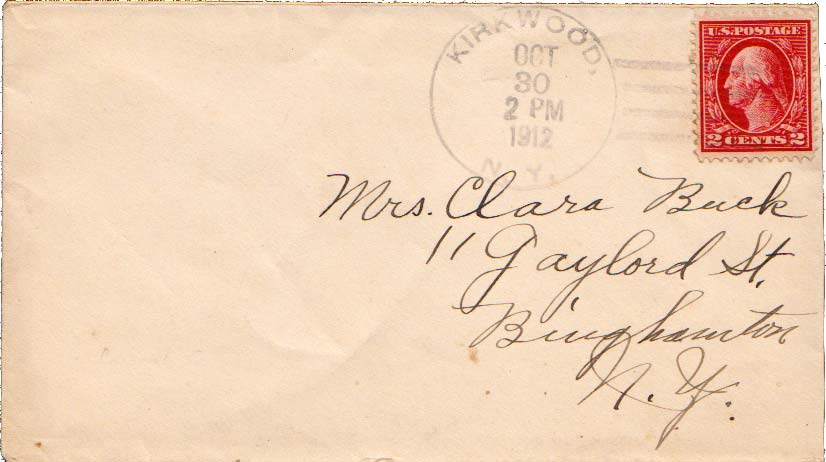 KIRKWOOD,
OCT
30
2 PM
1912
N. Y.
U.S. POSTAGE
2 CENTS 2
Mrs. Clara Buck
11 Gaylord St.
Binghamton
N. Y.